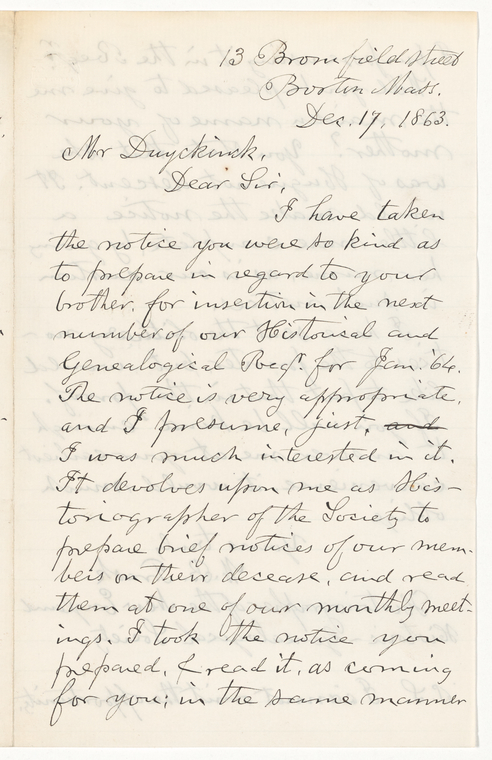 13 Bromfield street
Boston Mass.
Dec. 17, 1863.
Mr Duyckinck,
Dear Sir,
I have taken
the notice you were so kind as
to prepare in regard to your
brother, for insertion in the next
number of our Historical and
Genealogical Regr. for Jan. '64.
The notice is very appropriate,
and I presume, just, and
I was much interested in it.
It devolves upon me as His-
toriographer of the Society to
prepare brief notices of our mem-
bers on their decease, and read
them at one of our monthly meet-
ings. I took the notice you
prepared, & read it, as coming
for you; in the same manner